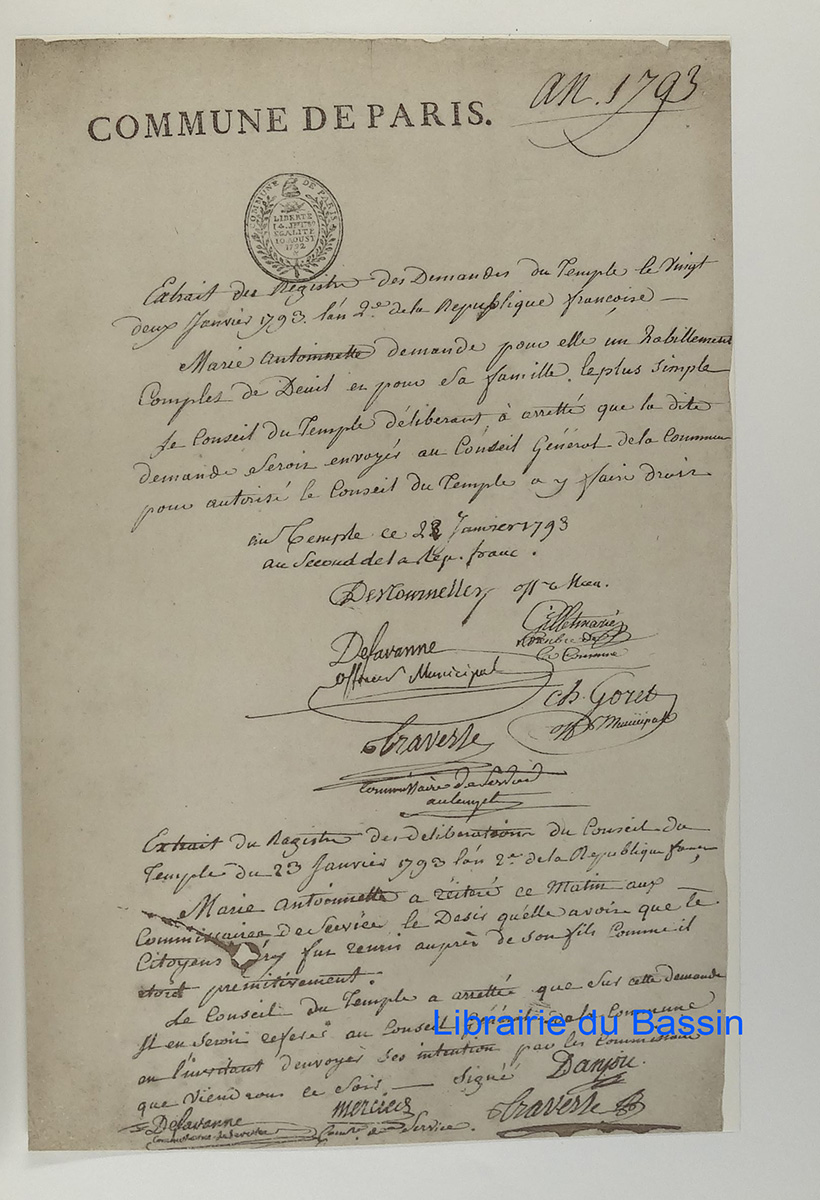 an. 1793
COMMUNE DE PARIS.
COMMUNE DE PARIS
LIBERTÉ
ÉGALITÉ
10 AOUST
1792
Extrait du Registre des Demandes du Temple le Vingt
deux Janvier 1793. l'an 2.e de la Republique françoise —
Marie Antoinnette demande pour elle un habillement
Complet de Deuil et pour sa famille, le plus simple
Le Conseil du Temple déliberant, à arretté que la dite
demande seroit envoyés au Conseil Général de la Commune
pour autorisé le Conseil du Temple a y faire droit
au Temple ce 23 Janvier 1793
au Second de la Rep. franc.
Destournelles off. Mun.
Gilletmarie
membre de
la Commune
Delavanne
officier Municipal
Ch. Goret
off. Municipal
Traverse
Commissaire de Service
au temple
Extrait du Registre des deliberations du Conseil du
Temple du 23 Janvier 1793 l'an 2.e de la Republique franc
Marie Antoinnette a réiteré ce Matin aux
Commissaires De Service le Desir qu'elle avoit que le
Citoyens fut reunis auprès de son fils Comme il
etoit premitivement.
Le Conseil du Temple a arretté que sur cette demande
Il en seroit referés au Conseil Général de la Commune
en l'invitant d'envoyer ses intention par les Commissaires
que viendrons ce soir — signé Danjou.
Delavanne
Commissaire de Service
Mercier
Comre. de Service.
Traverse
Librairie du Bassin